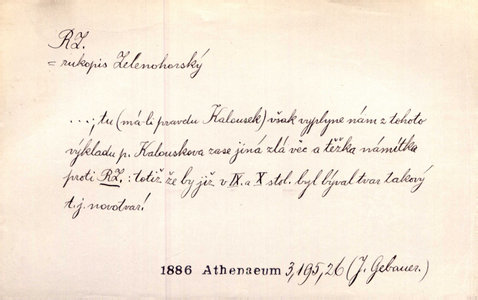 RZ.
= rukopis Zelenohorský
...; tu (má-li pravdu Kalousek) však vyplyne nám z tohoto
výkladu p. Kalouskova zase jiná zlá věc a těžká námitka
proti RZ.: totiž že by již v IX. a X stol. byl býval tvar takový
t.j. novotvar!
1886 Athenaeum 3,195,26 (J. Gebauer.)